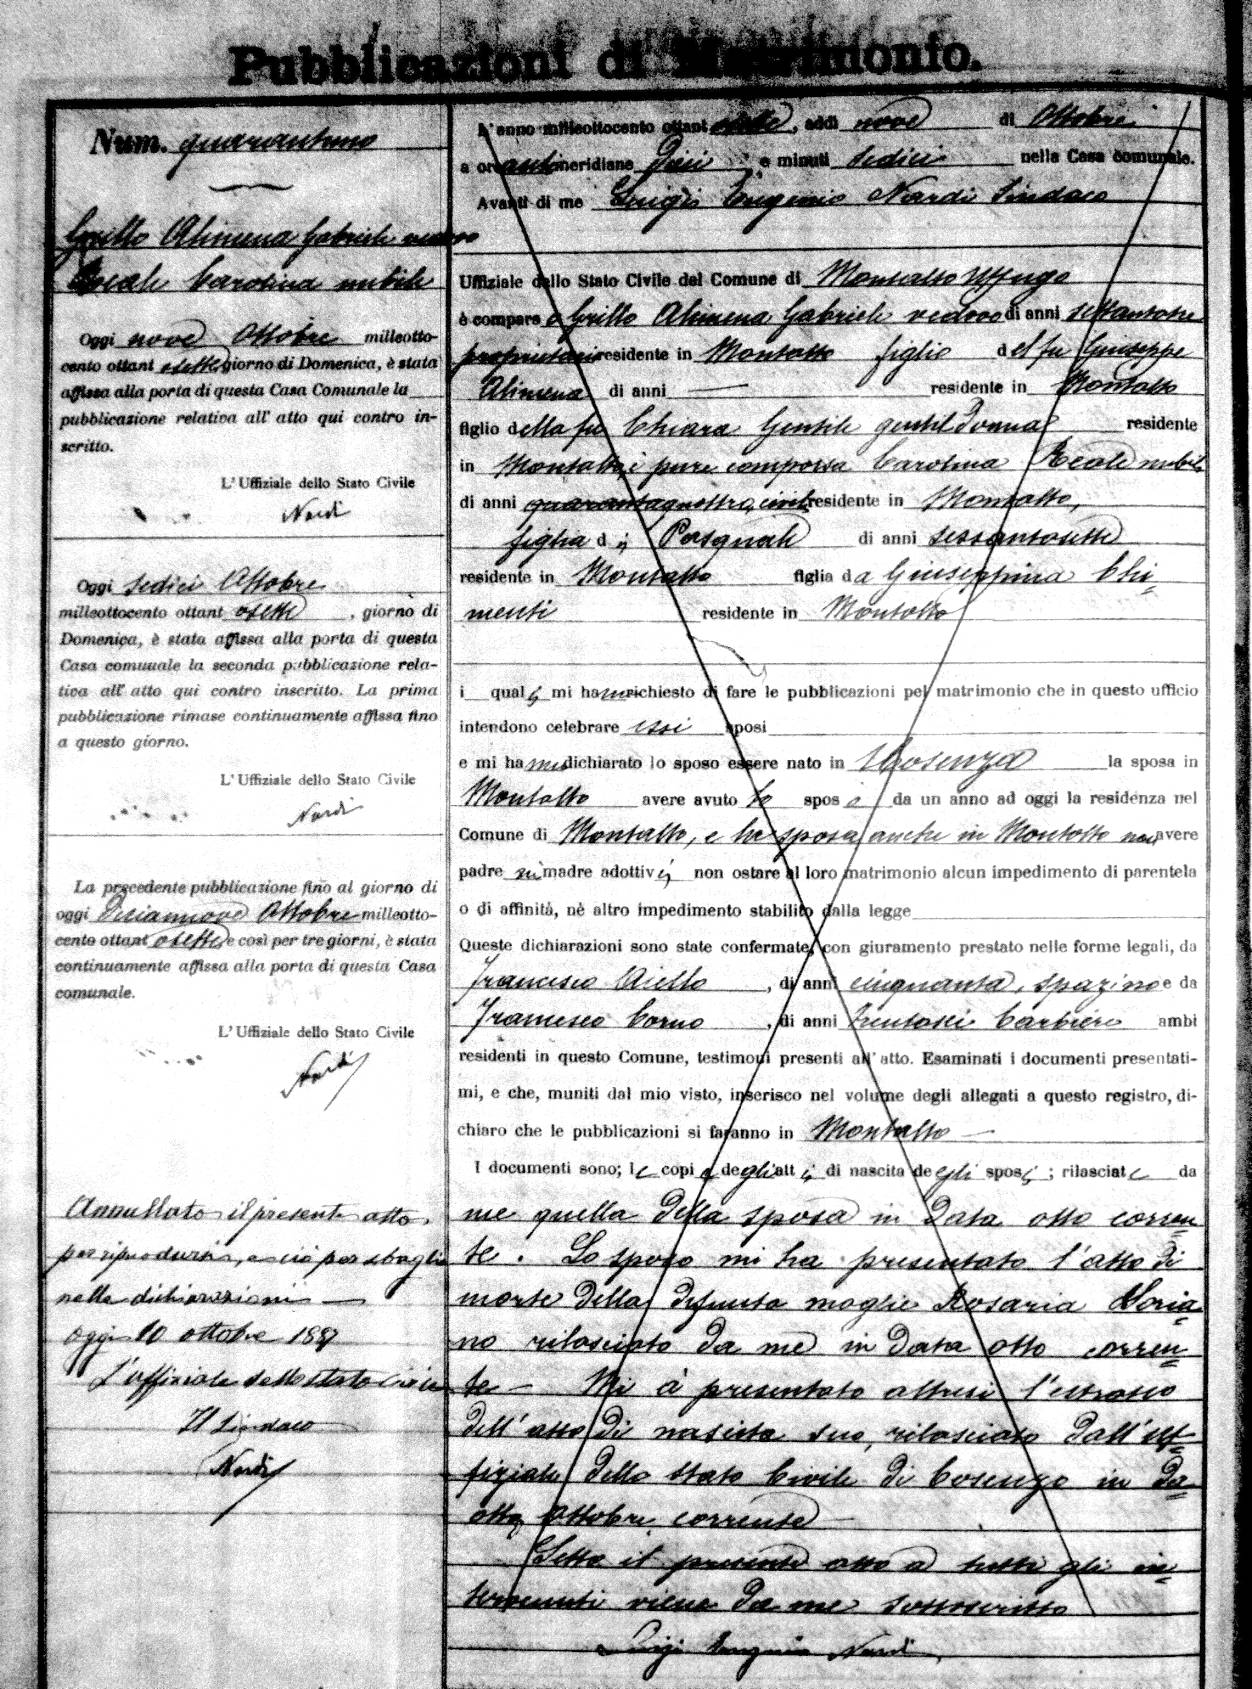 Pubblicazioni di Matrimonio.
Num. quarantuno
Grillo Alimena Gabriele vedovo
Reale Carolina nubile
Oggi nove Ottobre milleotto-
cento ottant osette giorno di Domenica, è stata
affissa alla porta di questa Casa Comunale la
pubblicazione relativa all' atto qui contro in-
scritto.
L' Uffiziale dello Stato Civile
Nardi
Oggi sedici Ottobre
milleottocento ottant osette, giorno di
Domenica, è stata affissa alla porta di questa
Casa comunale la seconda pubblicazione rela-
tiva all' atto qui contro inscritto. La prima
pubblicazione rimase continuamente affissa fino
a questo giorno.
L' Uffiziale dello Stato Civile
Nardi
La precedente pubblicazione fino al giorno di
oggi Diciannove Ottobre milleotto-
cento ottant osette e così per tre giorni, è stata
continuamente affissa alla porta di questa Casa
comunale.
L' Uffiziale dello Stato Civile
Nardi
Annullato il presente atto
per riprodursi, e ciò per sbaglio
nelle dichiarazioni —
Oggi 10 ottobre 1887
L'uffiziale dello stato civile
Il Sindaco
Nardi
L'anno milleottocento ottant osette, addì nove di Ottobre
a ore antimeridiane Dieci e minuti sedici nella Casa comunale.
Avanti di me Luigi Eugenio Nardi Sindaco
Uffiziale dello Stato Civile del Comune di Montalto Uffugo
è comparso Grillo Alimena Gabriele vedovo di anni settantatre
proprietario residente in Montalto figlio del fu Giuseppe
Alimena di anni — residente in Montalto
figlio della fu Chiara Gentile gentildonna residente
in Montalto, è pure comparsa Carolina Reale nubile
di anni quarantaquattro, civile residente in Montalto,
figlia di Pasquale di anni sessantasette
residente in Montalto figlia da Giuseppina Chi-
menti residente in Montalto
i quali mi hanno richiesto di fare le pubblicazioni pel matrimonio che in questo ufficio
intendono celebrare essi sposi
e mi hanno dichiarato lo sposo essere nato in Cosenza la sposa in
Montalto avere avuto lo sposo da un anno ad oggi la residenza nel
Comune di Montalto, e la sposa anche in Montalto non avere
padre nè madre adottivi, non ostare al loro matrimonio alcun impedimento di parentela
o di affinità, nè altro impedimento stabilito dalla legge
Queste dichiarazioni sono state confermate, con giuramento prestato nelle forme legali, da
Francesco Aiello, di anni cinquanta, spazino e da
Francesco Corno, di anni trentasei barbiere ambi
residenti in questo Comune, testimoni presenti all' atto. Esaminati i documenti presentati-
mi, e che, muniti dal mio visto, inserisco nel volume degli allegati a questo registro, di-
chiaro che le pubblicazioni si faranno in Montalto —
I documenti sono; le copie degli atti di nascita degli sposi; rilasciate da
me quella della sposa in data otto corren-
te. Lo sposo mi ha presentato l'atto di
morte della defunta moglie Rosaria Maria-
no rilasciato da me in data otto corren-
te — Mi à presentato altresì l'estratto
dell'atto di nascita suo, rilasciato dall'uf-
fiziale dello Stato Civile di Cosenza in da-
otto Ottobre corrente —
Letto il presente atto a tutti gli in-
tervenuti viene da me sottoscritto
Luigi Eugenio Nardi